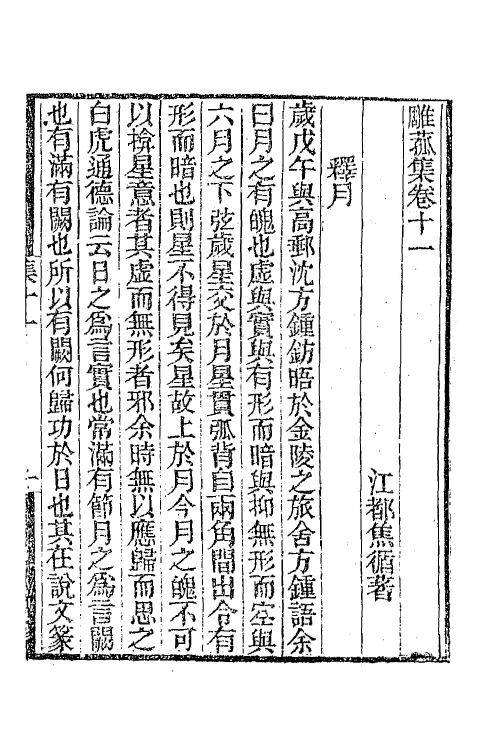 雕菰集卷十一
江都焦循著
釋月
歲戊午與高郵沈方鍾鈁晤於金陵之旅舍方鍾語余
曰月之有魄也虛與實與有形而暗與抑無形而空與
六月之下弦歲星交於月星貫弧背自兩角間出令有
形而暗也則星不得見矣星故上於月今月之魄不可
以揜星意者其虛而無形者邪余時無以應歸而思之
白虎通德論云日之為言實也常滿有節月之為言闕
也有滿有闕也所以有闕何歸功於日也其在說文篆
集十一
一